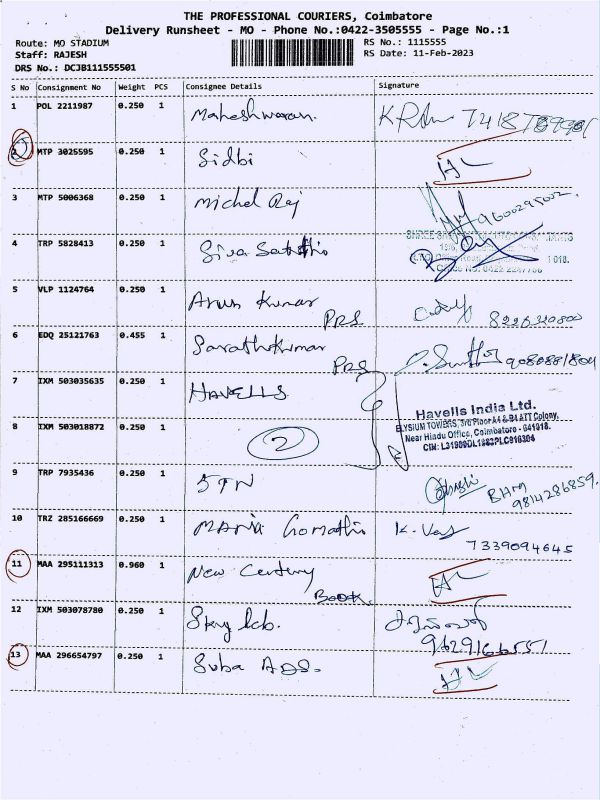 THE PROFESSIONAL COURIERS, Coimbatore
Delivery Runsheet - MO - Phone No.:0422-3505555 - Page No.:1
Route: MO STADIUM
RS No.: 1115555
Staff: RAJESH
RS Date: 11-Feb-2023
DRS No.: DCJB111555501
S No Consignment No Weight PCS Consignee Details Signature
1 POL 2211987 0.250 1 Maheshwaran
2 MTP 3025595 0.250 1 Sidbi
3 MTP 5006368 0.250 1 Michel Raj 9600295002
4 TRP 5828413 0.250 1 Siva Sakthi
5 VLP 1124764 0.250 1 Arun Kumar
PRS 8226320800
6 EDQ 25121763 0.455 1 Sarathkumar
PRS
7 IXM 503035635 0.250 1 HAVELLS
Havells India Ltd.
ELYSIUM TOWERS, 3rd Floor A4 & B4 ATT Colony,
8 IXM 503018872 0.250 1 2
Near Hindu Office, Coimbatore - 641018.
CIN: L31900DL1983PLC016304
9 TRP 7935436 0.250 1 STN
9814286859
10 TRZ 285166669 0.250 1 Maria Gomathi
7339094645
11 MAA 295111313 0.960 1 New Century
Book
12 IXM 503078780 0.250 1 lab.
9629166551
13 MAA 296654797 0.250 1 Suba Ads.